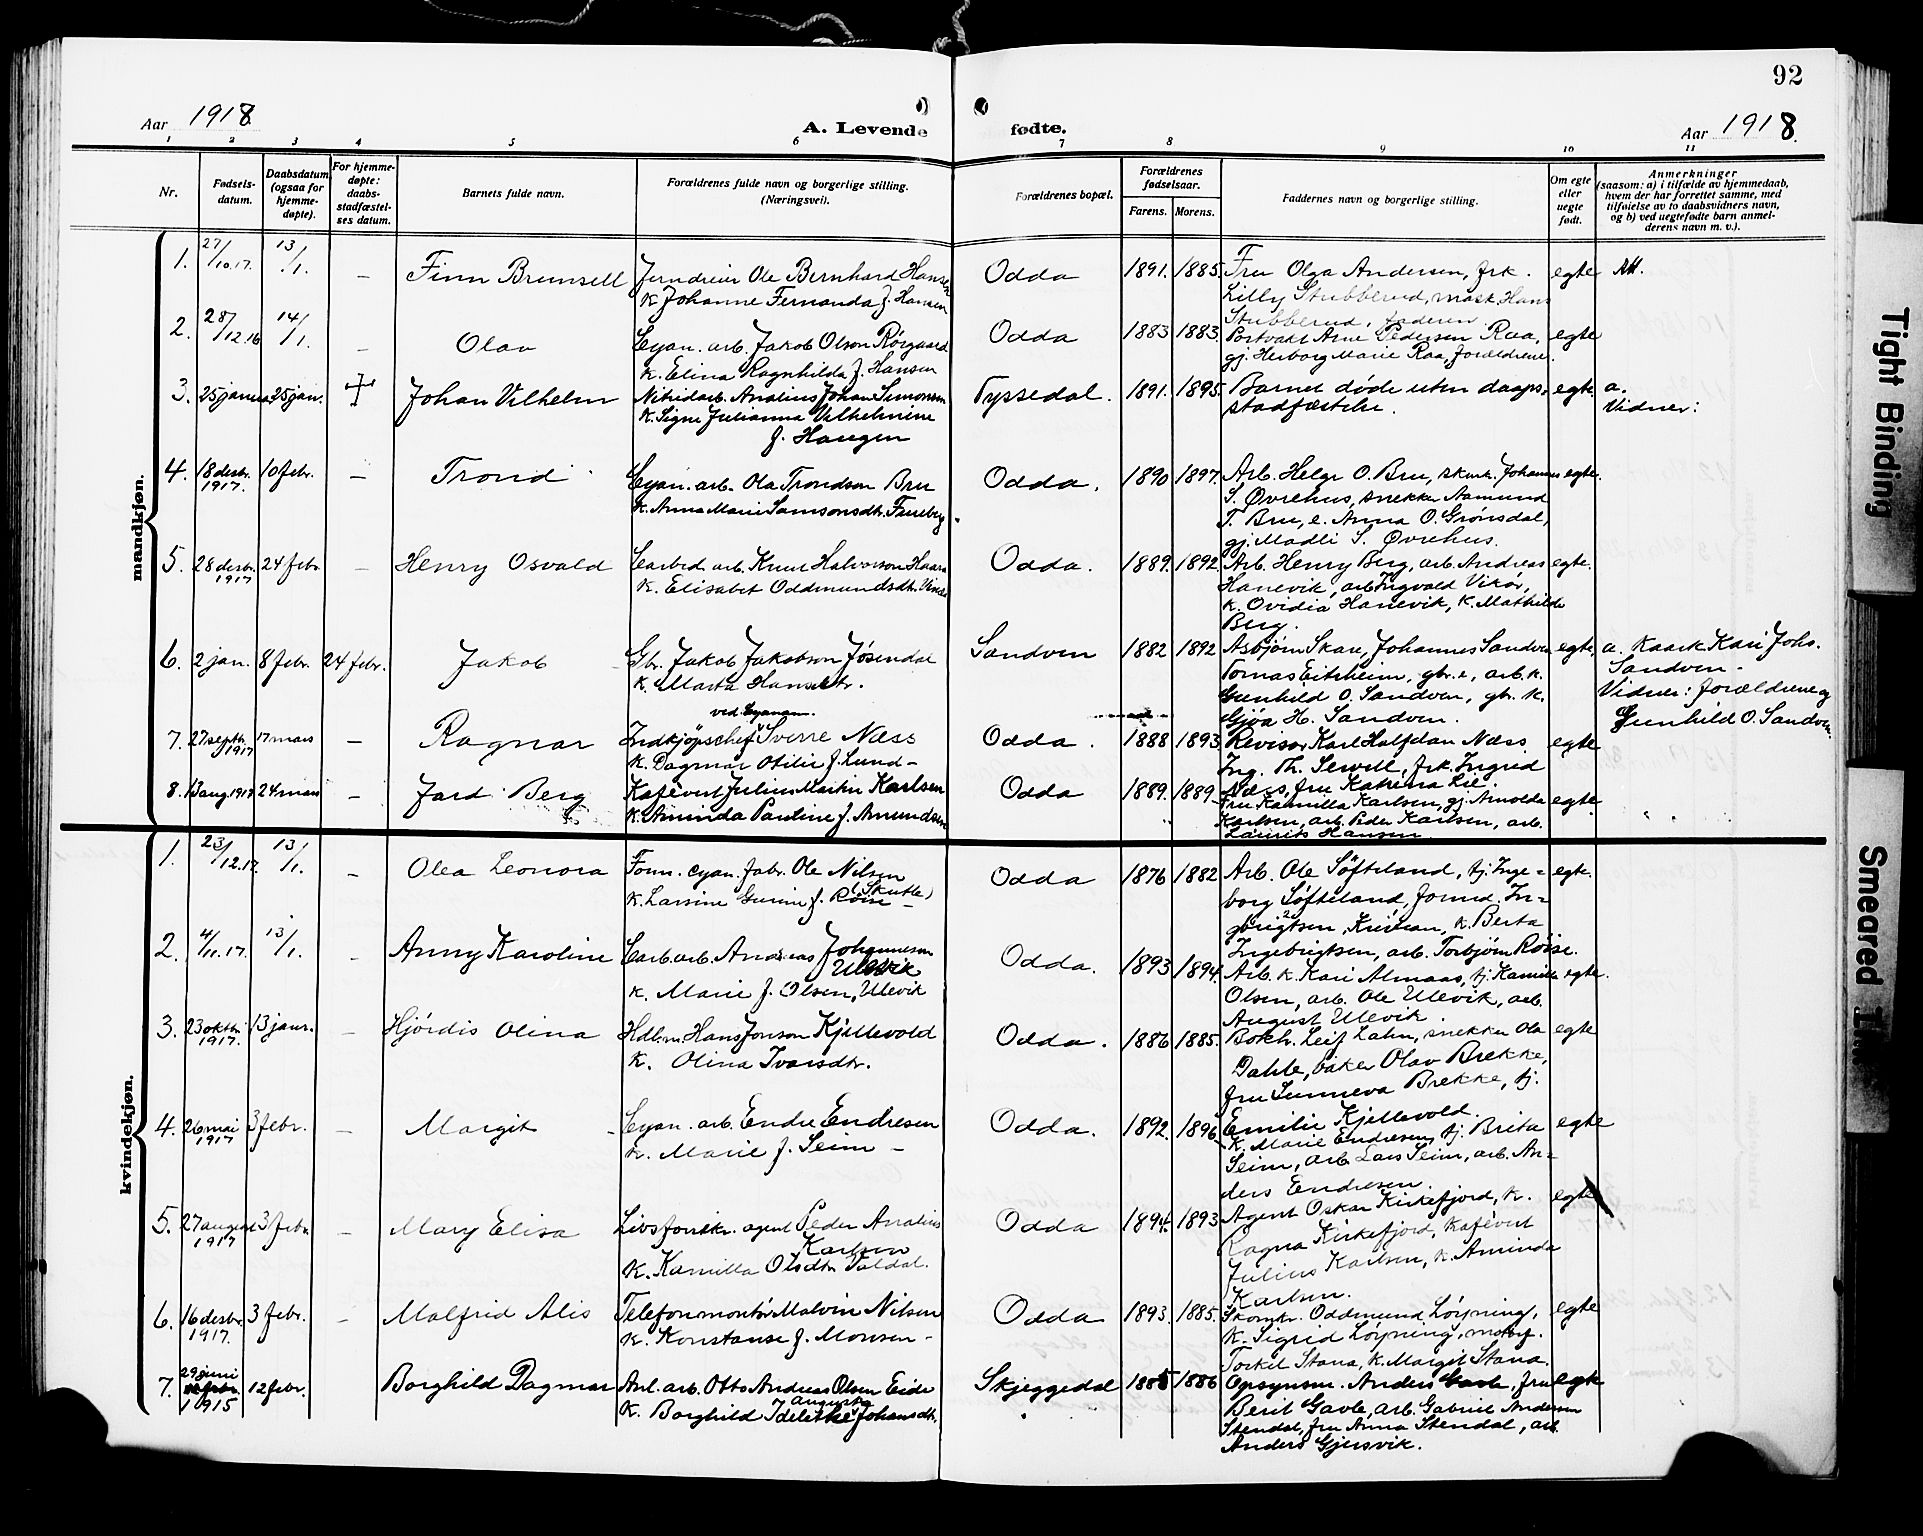 92
Aar 1918
A. Levende
fødte.
Aar 1918.
1 2 3 4 5 6 7 8 9 10 11
Nr.
Fødsels-
datum.
Daabsdatum
(ogsaa for
hjemme-
døpte).
For hjemme-
døpte:
daabs-
stadfæstel-
ses datum.
Barnets fulde navn.
Forældrenes fulde navn og borgerlige stilling.
(Næringsvei).
Forældrenes bopæl.
Forældrenes
fødselsaar.
Farens. Morens.
Faddernes navn og borgerlige stilling.
Om egte
eller
uegte
født.
Anmerkninger
(saasom: a) i tilfælde av hjemmedaab,
hvem der har forrettet samme, med
tilføielse av to daabsvidners navn,
og b) ved uegtefødte barn anmel-
derens navn m. v.).
mandkjøn.
1. 27/10.17. 13/1. – Finn Brunsell
Jerndreier Ole Bernhard Hansen
k. Johanne Fernanda f. Hansen
Odda 1891. 1885.
Fru Olga Andersen, frk.
Lilly Stubberud, mask. Hans
Stubberud, faderen
egte
2. 28/12.16 14/1. – Olav
Cyan. arb. Jakob Olson Rørgaard
k. Elina Ragnhilda f. Hansen
Odda 1883 1883.
Portvakt Arne Pedersen Raa,
gj. Herborg Marie Raa, forældrene.
egte
3. 25 januar 25 jan. Johan Vilhelm
Nitridarb. Analius Johan Simonsen
k. Signe Julianna Vilhelmine
f. Haugen
Tyssedal. 1891. 1895.
Barnet døde uten daaps-
stadfæstelse.
egte. a.
Vidner:
4. 18 desbr. 1917. 10 febr. – Trond
Cyan. arb. Ola Trondson Bru
k. Anna Marie Samsonsdtr.
Odda. 1890 1897.
Arb. Helge O. Bru, Johannes
S. Øvrehus, snekker Aamund
T. Bru, e. Anna O. Grønsdal,
gj. Madli S. Øvrehus.
egte.
5. 28 desbr. 1917 24 febr. – Henry Osvald
Carbid arb. Knut Halvorson
k. Elisabet Oddmundsdtr.
Odda. 1889. 1892
Arb. Henry Berg, arb. Andreas
Hanevik, arb. Ingvald Vikør,
k. Ovidia Hanevik, k. Mathilde
Berg.
egte.
6. 2 jan. 8 febr. 24 febr. Jakob
Gbr. Jakob Jakobson Jøsendal
k. Marta Hansdtr.
Sandven 1882 1892
Asbjørn Skare, Johannes Sandven
Tomas Eitrheim, gbr.e, arb. k.
Gunhild O. Sandven, gbr. k.
Gjøa H. Sandven.
egte.
a. Kaark Kari Johs.
Sandven -
Vidner: forældrene og
Gunhild O. Sandven.
7. 27 septbr. 1917 17 mars – Ragnar
ved Cyanam.
Indkjøpschef Sverre Næss
k. Dagmar Otilie f. Lund –
Odda. 1888 1893
Revisor Karl Halfdan Næss
Ing. Th. Sewell, frk. Ingrid
Næss, fru Katrina Lie.
egte
8. 13 aug. 1917 24 mars – Jard Berg
Kafevert Julius Martin Karlsen
k. Aminda Pauline f. Amundsen
Odda 1889. 1889
Fru Kamilla Karlsen, gj. Arnolda
Karlsen, arb. Peder Karlsen, arb.
Laurits Hansen
egte.
kvindekjøn.
1. 23/12.17. 13/1. – Olea Leonora
Form. cyan. fabr. Ole Nilsen
(Skutle)
k. Larsine Gurine f. Røise –
Odda 1876 1882
Arb. Ole Søfteland, tj. Inge-
borg Søfteland, formd. In-
gbrigtsen, Kristian, k. Berta
Ingebrigtsen, arb. Torbjørn Røise.
egte.
2. 4/11.17. 13/1. – Anny Karoline
Carb. arb. Andreas Johannesen
Ulevik
k. Marie f. Olsen, Ulevik
Odda. 1893 1894.
Arb. k. Kari Almaas, tj. Kamilla
Olsen, arb. Ole Ulevik, arb.
August Ulevik.
egte.
3. 23 oktbr. 1917. 13 janr. – Hjørdis Olina
Hdlm. Hans Jonson Kjellevold
k. Olina Ivarsdtr.
Odda. 1886 1885.
Bokh. Leif Lahn, snekker Ole
Dahle, baker Olav Brekke,
fru Sunneva Brekke, tj.
Emilie Kjellevold.
egte
4. 26 mai 1917 3 febr. – Margit
Cyan. arb. Endre Endresen
k. Marie f. Seim –
Odda. 1892. 1896
k. Marie Endresen, tj. Brita
Seim, arb. Lars Seim, arb. An-
ders Endresen.
egte
5. 27 august 1917 3 febr. – Mary Elisa
Livsforsikr. agent Peder Analius
Karlsen
k. Kamilla Olsdtr.
Odda 1894. 1893
Agent Oskar Kirkefjord, k.
Ragna Kirkefjord, kafévert
Julius Karlsen, k. Aminda
Karlsen.
egte
6. 16 desbr. 1917. 3 febr. – Malfrid Alis
Telefonmontør Malvin Nilsen
k. Konstanse f. Monsen –
Odda 1893. 1885.
Skomkr. Oddmund Løyning,
k. Sigrid Løyning,
Torkil Stana, k. Margit Stana.
egte
7. 29 juni 1915 12 febr. Borghild Dagmar
Anl. arb. Otto Andreas Olsen Eide
Augusta
k. Borghild Johansdtr.
Skjeggedal 1885 1886
Opsynsm. Anders Gavle, fru
Berit Gavle, arb. Gabriel Andersen
Stendal, fru Anna Stendal, arb.
Anders Gjersvik.
egte
Tight Binding
Smeared